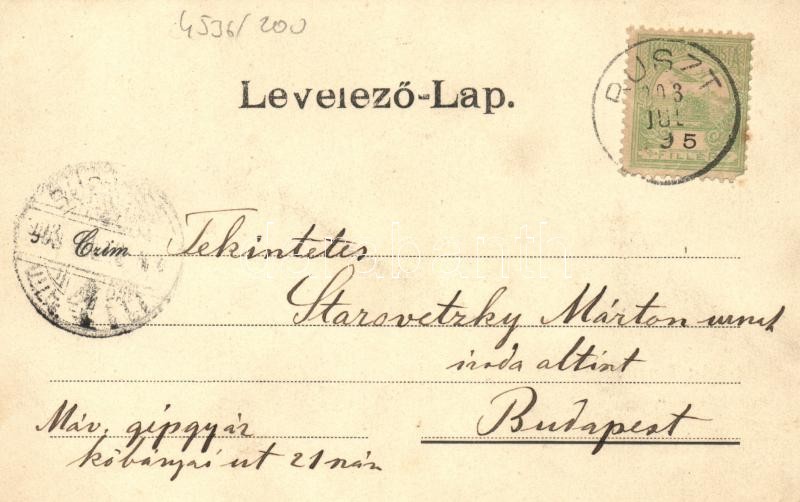 4536/200
Levelező-Lap.
RUSZT
903
JUL
9 5
5 FILLÉR
Czim
Tekintetes
Starovetzky Márton urnak
iroda altiszt
Budapest
Máv. gépgyár
kőbányai ut 21 szám